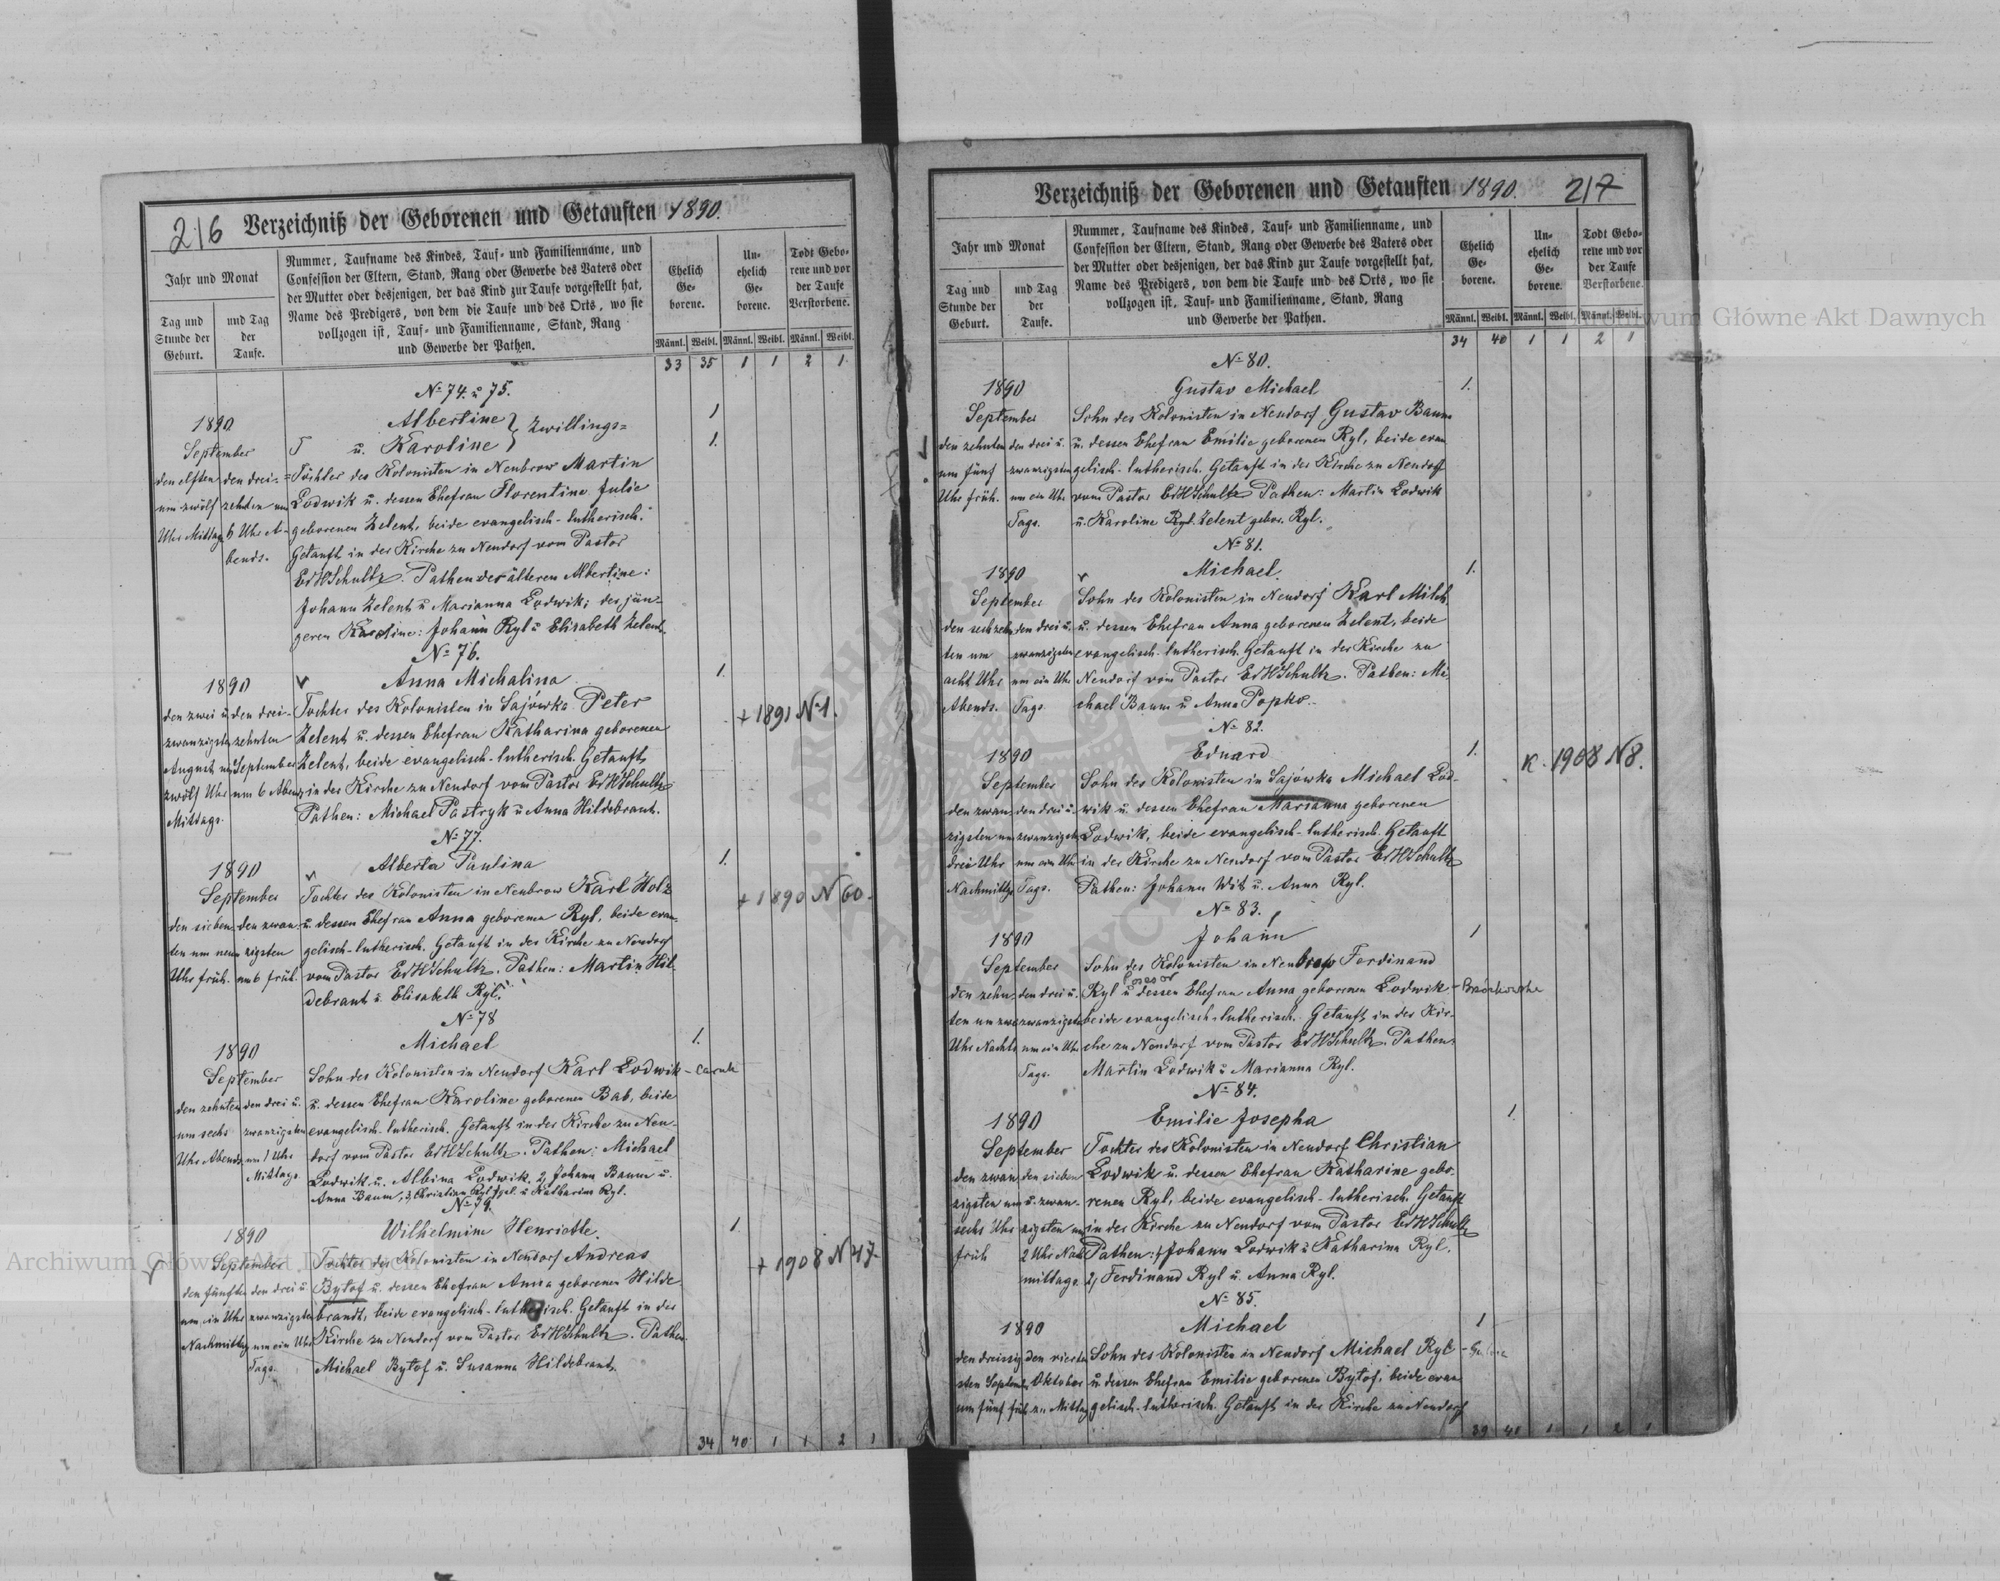 216 Verzeichniß der Geborenen und Getauften 1890.
Jahr und Monat
Tag und Stunde der Geburt.
und Tag der Taufe.
Nummer, Taufname des Kindes, Tauf- und Familienname, und
Confession der Eltern, Stand, Rang oder Gewerbe des Vaters oder
der Mutter oder desjenigen, der das Kind zur Taufe vorgestellt hat,
Name des Predigers, von dem die Taufe und des Orts, wo sie
vollzogen ist, Tauf- und Familienname, Stand, Rang
und Gewerbe der Pathen.
Ehelich Ge-borene.
Un-ehelich Ge-borene.
Todt Gebo-rene und vor der Taufe Verstorbene.
Männl. Weibl. Männl. Weibl. Männl. Weibl.
33 35 1 1 2 1
No 74. u 75.
1890 Albertine } Zwillings= 1
September u. Karoline 1.
den elften den drei-= Töchter des Kolonisten in Neubrow Martin
um zwölf zehnten um Lodwik u. dessen Ehefrau Florentine Julie
Uhr Mittag 6 Uhr A- geborenen Zelent, beide evangelisch-lutherisch.
bends. Getauft in der Kirche zu Neudorf vom Pastor
EdHSchultz. Pathen der älteren Albertine:
Johann Zelent u Marianna Lodwik; der jün-
geren Karoline: Johann Ryl u Elisabeth Zelent.
No 76.
1890 Anna Michalina 1.
den zwei u. den drei- Tochter des Kolonisten in Sajówka Peter
zwanzigsten zehnten Zelent u. dessen Ehefrau Katharina geborenen + 1891 N 1.
August um September Zelent, beide evangelisch-lutherisch. Getauft
zwölf Uhr um 6 Abends in der Kirche zu Neudorf vom Pastor EdHSchultz
Mittags. Pathen: Michael Pastryk u Anna Hildebrant.
No 77.
1890 Alberta Paulina 1.
September Tochter des Kolonisten in Neubrow Karl Holz + 1890 N 60.
den sieben- den zwan- u. dessen Ehefrau Anna geborenen Ryl, beide evan-
ten um neun zigsten gelisch-lutherisch. Getauft in der Kirche zu Neudorf
Uhr früh. um 6 früh. vom Pastor EdHSchultz. Pathen: Martin Hil-
debrant u. Elisabeth Ryl.
No 78
1890 Michael 1.
September Sohn des Kolonisten in Neudorf Karl Lodwik
den zehnten den drei u. u. dessen Ehefrau Karoline geborenen Bab, beide
um sechs zwanzigsten evangelisch-lutherisch. Getauft in der Kirche zu Neu-
Uhr Abends um 1 Uhr dorf vom Pastor EdHSchultz. Pathen: Michael
Mittags. Lodwik u. Albina Lodwik, 2, Johann Baum u.
Anna Baum, 3, Christian Ryl u Katharina Ryl.
No 79.
1890 Wilhelmine Henriette. 1.
September Tochter des Kolonisten in Neudorf Andreas + 1908 N 47.
den fünften den drei u. Bytof u. dessen Ehefrau Anna geborenen Hilde
um ein Uhr zwanzigsten brandt, beide evangelisch-lutherisch. Getauft in der
Nachmittag um ein Uhr Kirche zu Neudorf vom Pastor EdHSchultz. Pathen:
Tags. Michael Bytof u. Susanna Hildebrant.
34 40 1 1 2 1
Verzeichniß der Geborenen und Getauften 1890. 217
Jahr und Monat
Tag und Stunde der Geburt.
und Tag der Taufe.
Nummer, Taufname des Kindes, Tauf- und Familienname, und
Confession der Eltern, Stand, Rang oder Gewerbe des Vaters oder
der Mutter oder desjenigen, der das Kind zur Taufe vorgestellt hat,
Name des Predigers, von dem die Taufe und des Orts, wo sie
vollzogen ist, Tauf- und Familienname, Stand, Rang
und Gewerbe der Pathen.
Ehelich Ge-borene.
Un-ehelich Ge-borene.
Todt Gebo-rene und vor der Taufe Verstorbene.
Männl. Weibl. Männl. Weibl. Männl. Weibl.
34 40 1 1 2 1
No 80.
1890 Gustav Michael 1.
September Sohn des Kolonisten in Neudorf Gustav Baum
den zehnten den drei u. u. dessen Ehefrau Emilie geborenen Ryl, beide evan
um fünf zwanzigsten gelisch-lutherisch. Getauft in der Kirche zu Neudorf
Uhr früh. um ein Uhr vom Pastor EdHSchultz Pathen: Martin Lodwik
Tags. u. Karoline Ryl. Zelent gebor. Ryl.
No 81.
1890 Michael. 1.
September Sohn des Kolonisten in Neudorf Karl Milch
den sechzehn den drei u. u. dessen Ehefrau Anna geborenen Zelent, beide
ten um zwanzigsten evangelisch-lutherisch. Getauft in der Kirche zu
acht Uhr um ein Uhr Neudorf vom Pastor EdHSchultz. Pathen: Mi-
Abends. Tags. chael Baum u Anna Popko.
No 82.
1890 Eduard 1. K. 1908 N 8.
September Sohn des Kolonisten in Sajówka Michael Lod-
den zwan- den drei u. wik u. dessen Ehefrau Marianna geborenen
zigsten um zwanzigsten Lodwik, beide evangelisch-lutherisch. Getauft
drei Uhr um ein Uhr in der Kirche zu Neudorf vom Pastor EdHSchultz
Nachmittgs Tags. Pathen: Johann Wit u. Anna Ryl.
No 83.
1890 Johann 1
September Sohn des Kolonisten in Neubrow Ferdinand
den zehn- den drei u. Ryl u dessen Ehefrau Anna geborenen Lodwik
ten um zwei zwanzigsten beide evangelisch-lutherisch. Getauft in der Kir-
Uhr Nachts um ein Uhr che zu Neudorf vom Pastor EdHSchultz. Pathen:
Tags. Martin Lodwik u Marianna Ryl.
No 84.
1890 Emilie Josepha 1
September Tochter des Kolonisten in Neudorf Christian
den zwan den sieben Lodwik u. dessen Ehefrau Katharine gebo-
zigsten um u. zwan- renen Ryl, beide evangelisch-lutherisch. Getauft
sechs Uhr zigsten um in der Kirche zu Neudorf vom Pastor EdHSchultz
früh 2 Uhr Nach Pathen: 1, Johann Lodwik u Katharina Ryl.
mittags. 2, Ferdinand Ryl u. Anna Ryl.
No 85.
1890 Michael 1
den dreissig den vierten Sohn des Kolonisten in Neudorf Michael Ryl
sten Septemb. Oktober u. dessen Ehefrau Emilie geborenen Bytof, beide evan
um fünf früh zu Mittag gelisch-lutherisch. Getauft in der Kirche zu Neudorf
39 41 1 1 2 1
Archiwum Główne Akt Dawnych
Archiwum Główne Akt Dawnych